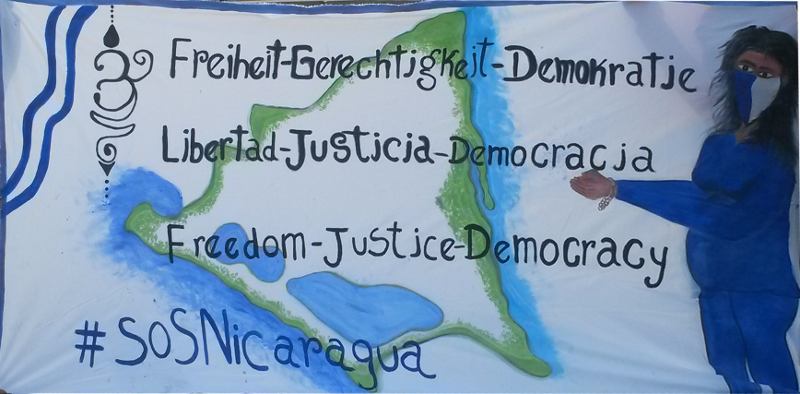 Freiheit-Gerechtigkeit-Demokratie
Libertad-Justicia-Democracia
Freedom-Justice-Democracy
#SOSNicaragua